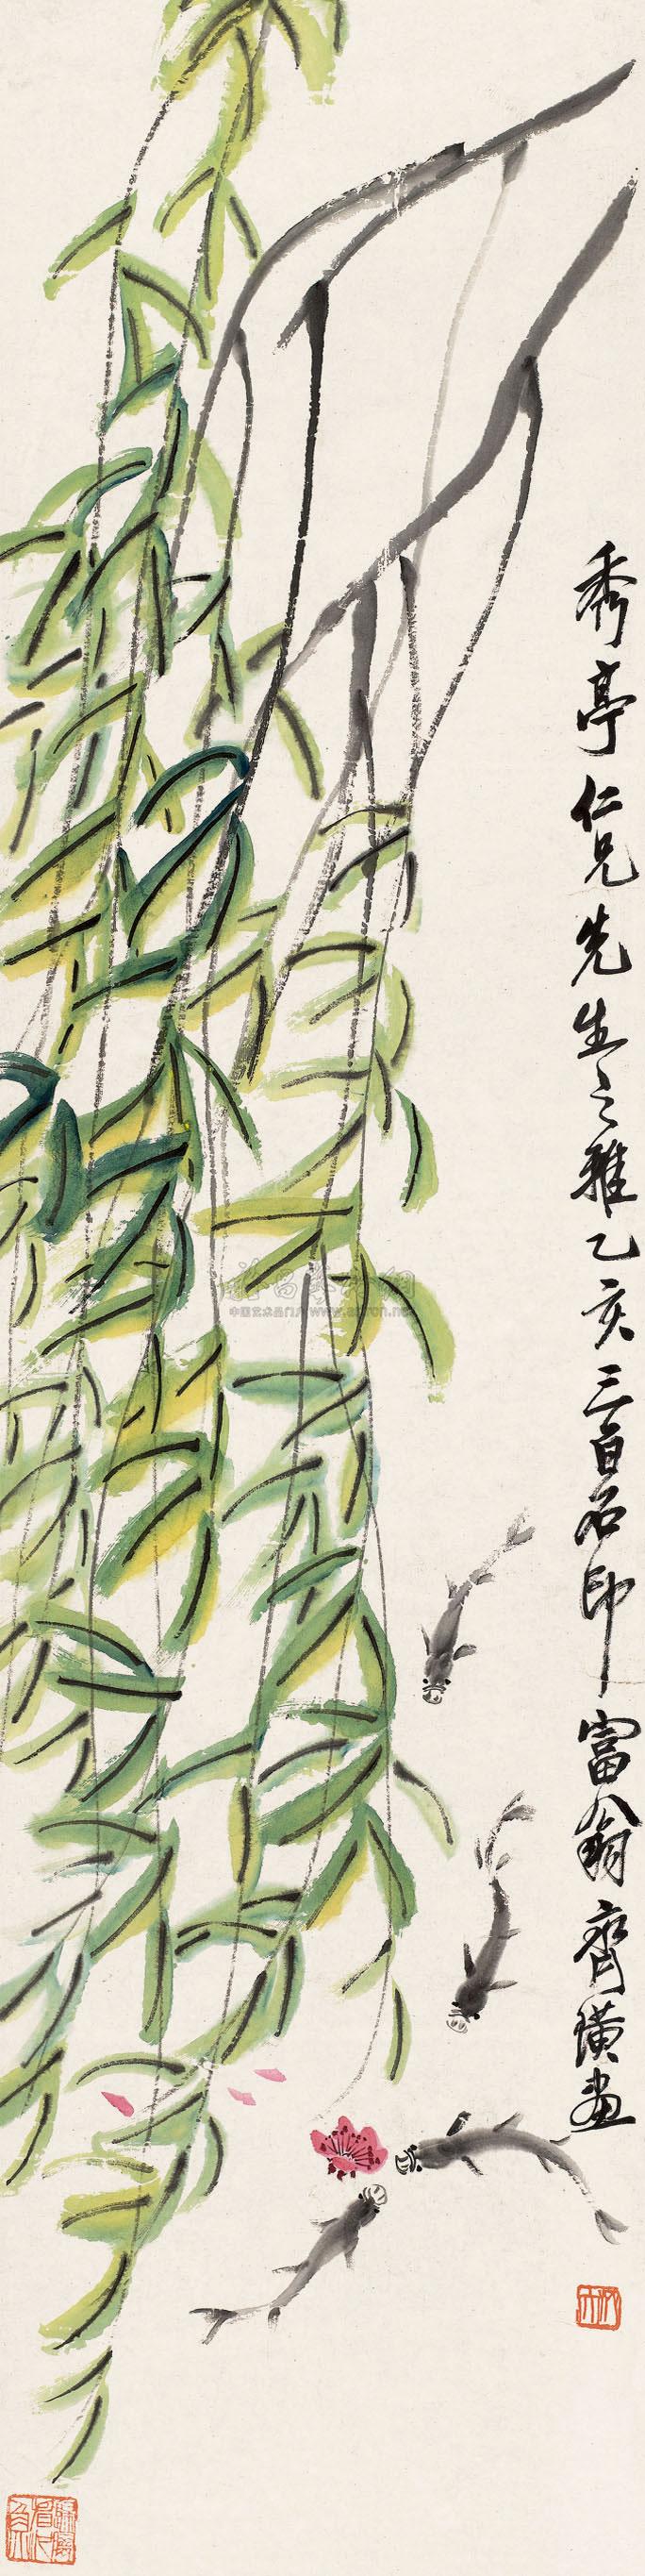 秀亭仁兄先生之雅乙亥三百石印富翁齊璜画
中国艺术品门户/www.artron.net